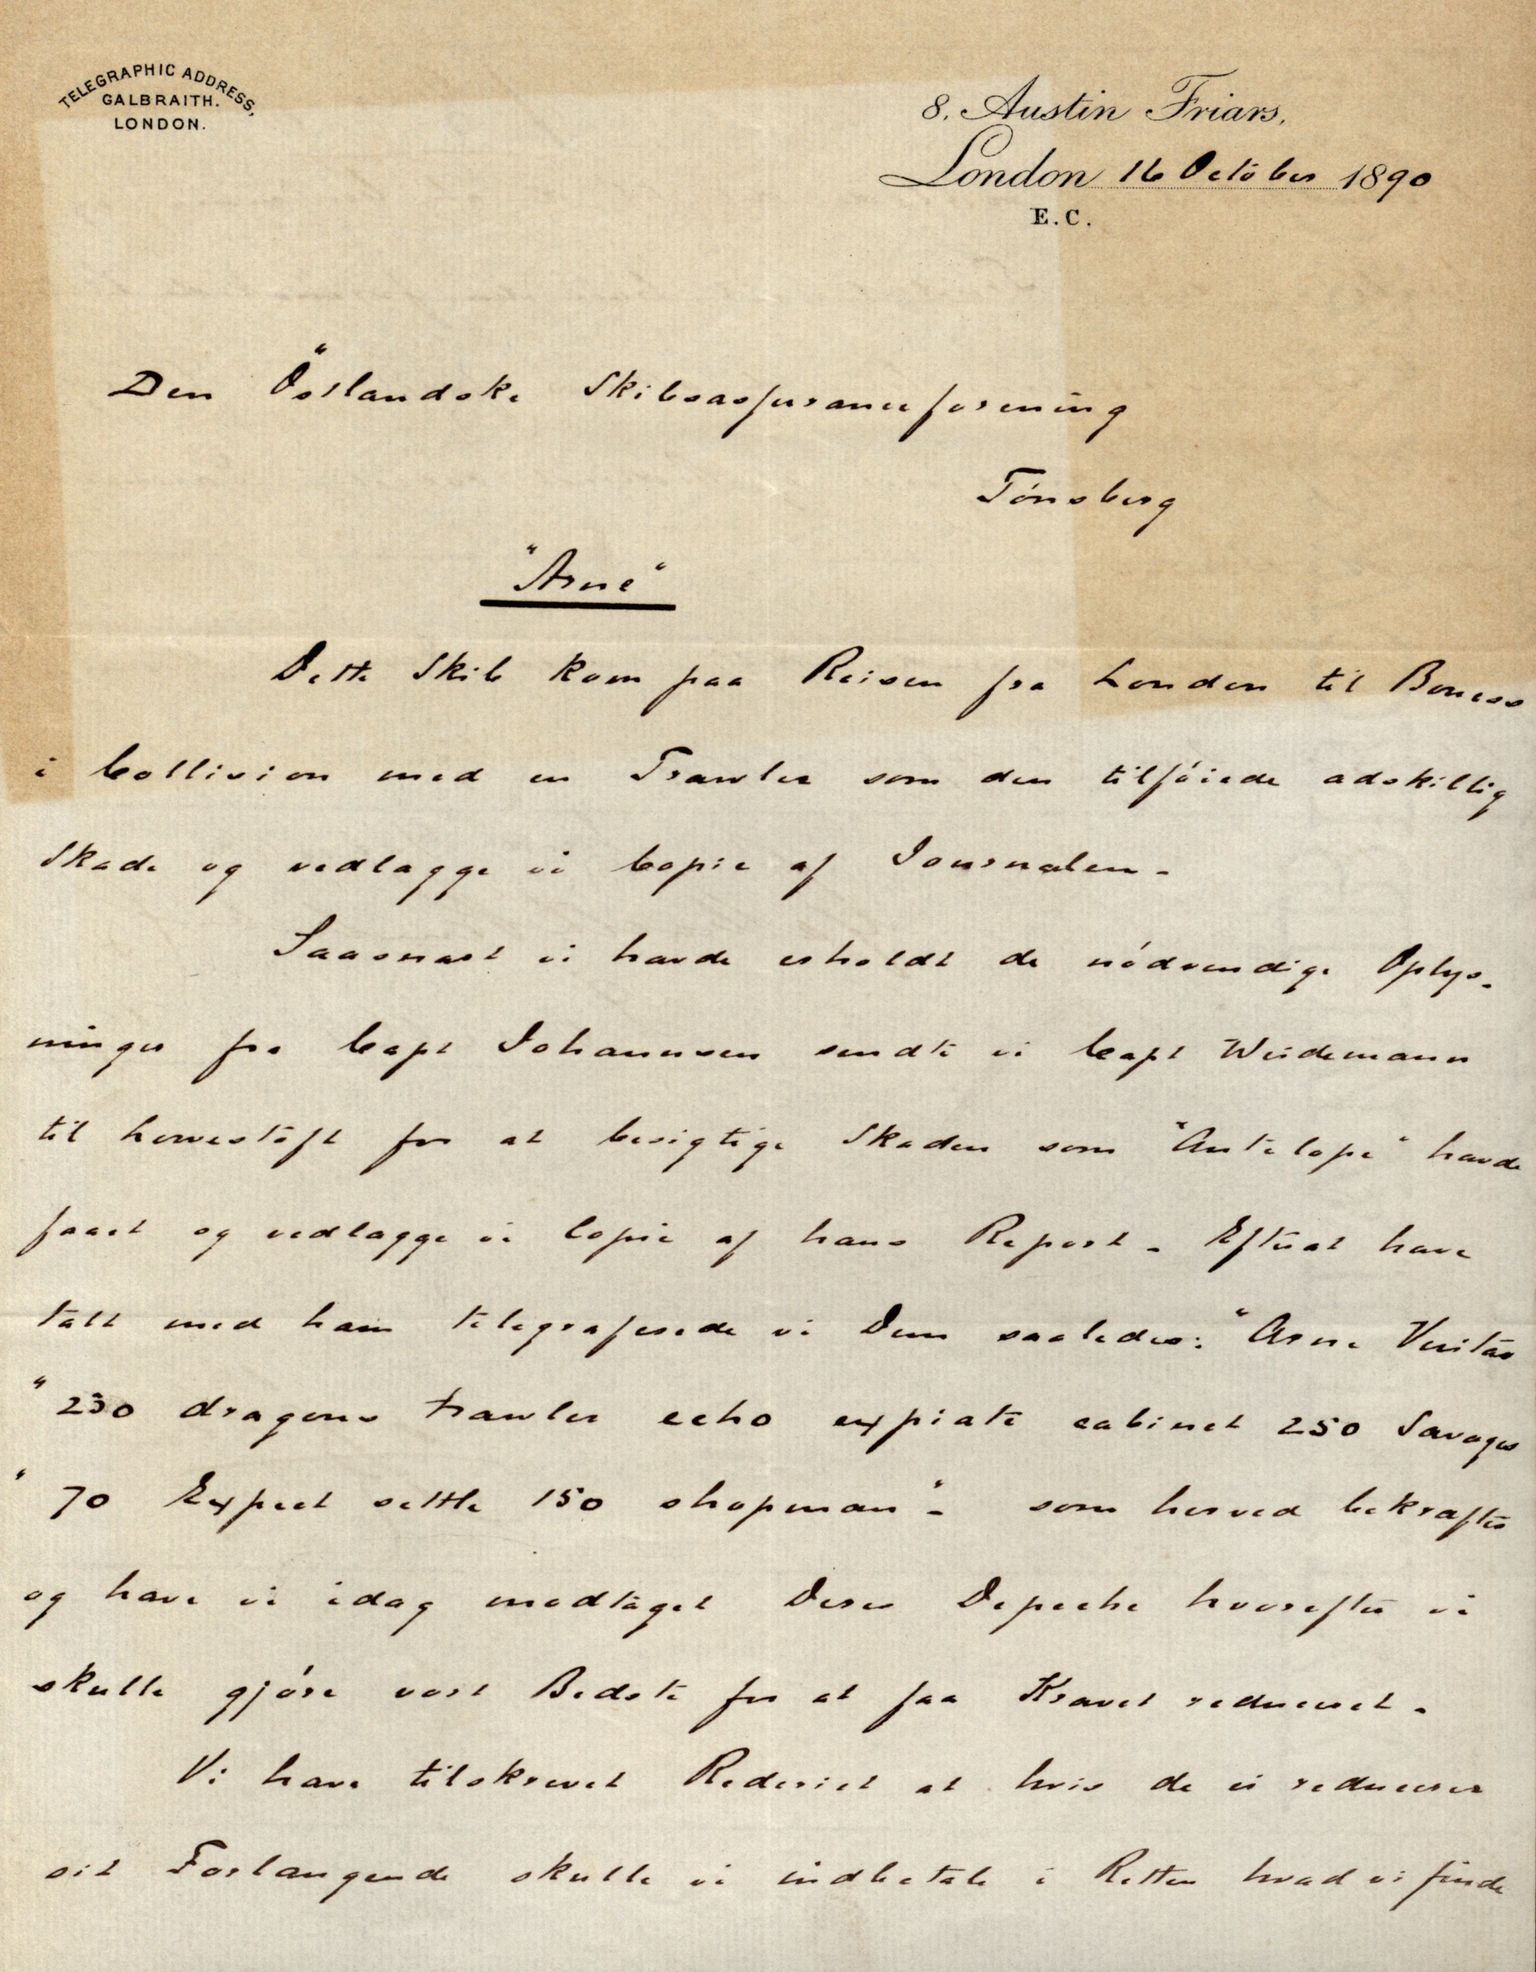 TELEGRAPHIC ADDRESS,
GALBRAITH.
LONDON.
8, Austin Friars,
London 16 October 1890
E.C.
Den Östlandske Skibsassuranceforening
Tönsberg
"Arne"
Dette Skib kom paa Reisen fra London til Boness
i Collision med en Trawler som den tilföiede adskillig
Skade og vedlægge vi Copie af Journalen -
Saasnart vi havde erholdt de nödvendige Oplys-
ninger fra Capt Johannsen sendte vi Capt Weidemann
til Lowestoft for at besigtige Skaden som "Antelope" havde
faaet og vedlægge vi Copie af hans Report - Efterat have
talt med ham telegraferede vi Dem saaledes: "Arne Veritas
" 230 dragons trawler echo expiate cabinet 250 Savages
" 70 Expect settle 150 shopman" - som herved bekræftes
og have vi idag modtaget Deres Depeche hvorefter vi
skulle gjöre vort Bedste for at faa Kravet reduceret -
Vi have tilskrevet Rederiet at hvis de ei reducerer
sit Forlangende skulle vi indbetale i Retten hvad vi finde